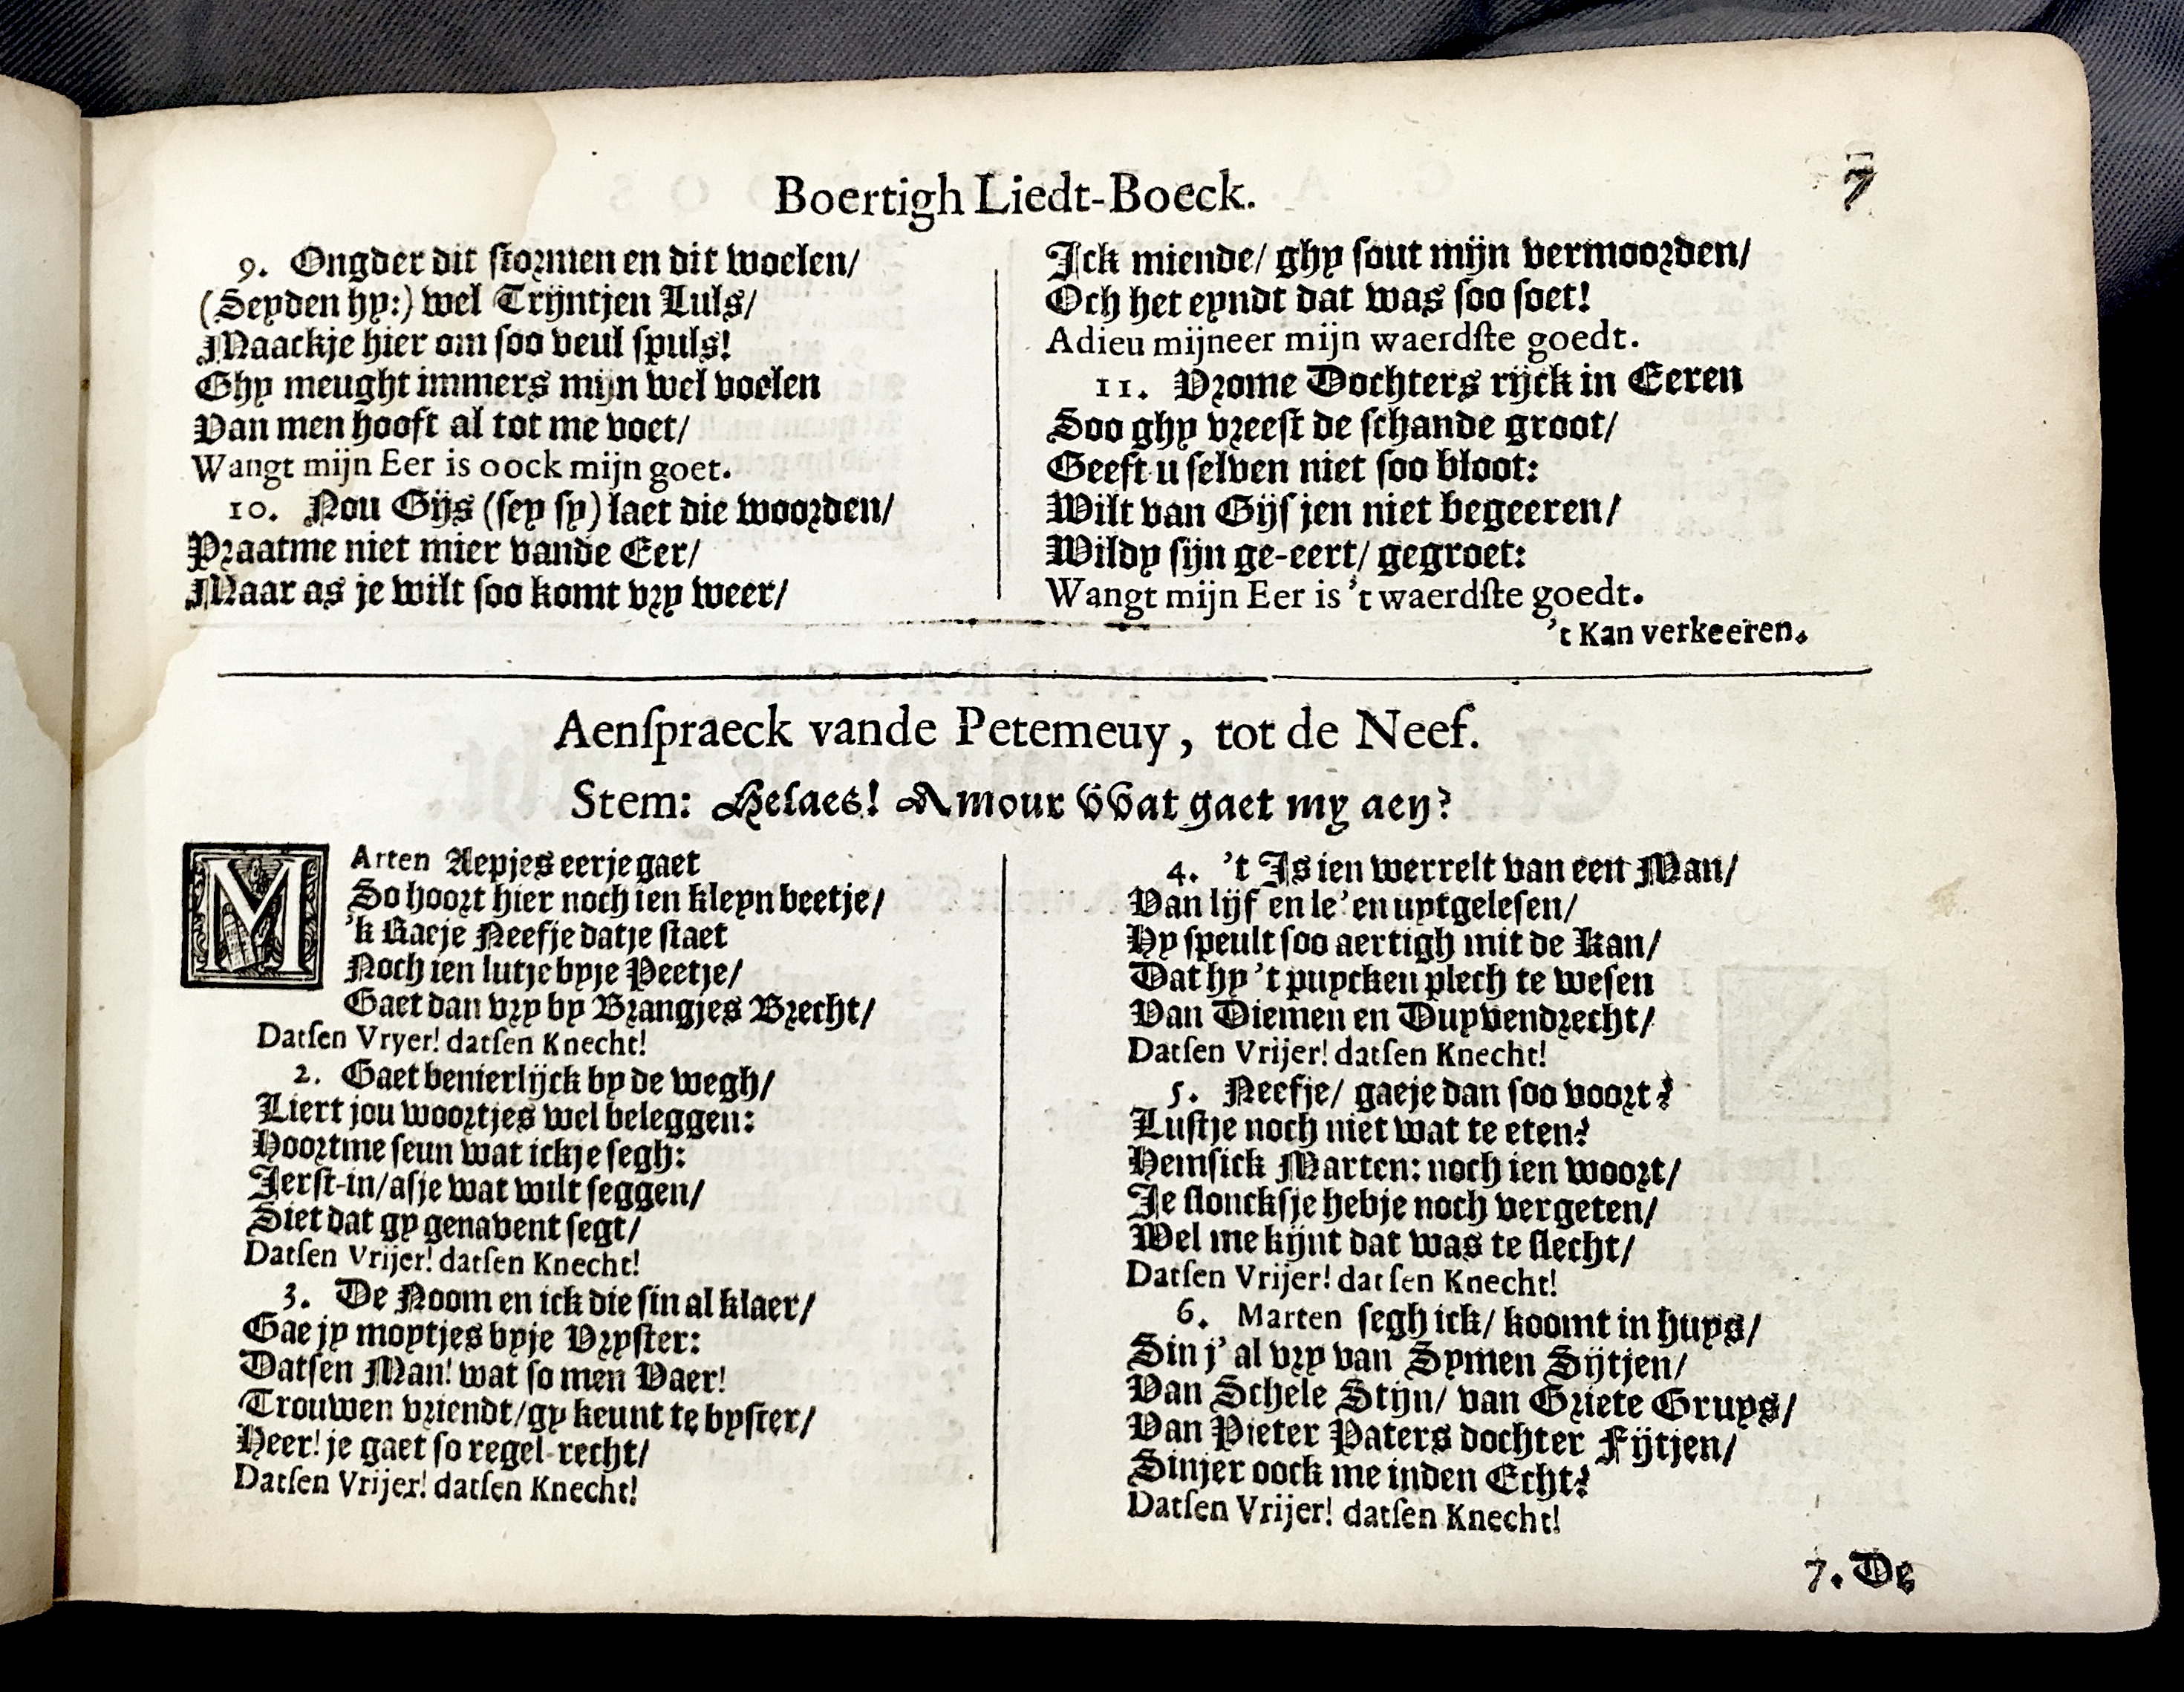 Boertigh Liedt-Boeck.
7
9. Ongder dit stormen en dit woelen/
(Seyden hy:) wel Trijntjen Luls/
Maackje hier om soo veul spuls!
Ghy meught immers mijn wel voelen
Van men hooft al tot me voet/
Wangt mijn Eer is oock mijn goet.
10. Nou Gijs (sey sy) laet die woorden/
Praatme niet mier vande Eer/
Maar as je wilt soo komt vry weer/
Ick miende/ ghy sout mijn vermoorden/
Och het eyndt dat was soo soet!
Adieu mijneer mijn waerdste goedt.
11. Vrome Dochters rijck in Eeren
Soo ghy vreest de schande groot/
Geeft u selven niet soo bloot:
Wilt van Gijsjen niet begeeren/
Wildy sijn ge-eert/ gegroet:
Wangt mijn Eer is 't waerdste goedt.
't Kan verkeeren.
Aenspraeck vande Petemeuy, tot de Neef.
Stem: Helaes! Amour VVat gaet my aen?
MArten Aepjes eerje gaet
So hoort hier noch ien kleyn beetje/
'k Raeje Neefje datje staet
Noch ien lutje byje Peetje/
Gaet dan vry by Brangjes Brecht/
Datsen Vryer! datsen Knecht!
2. Gaet benierlijck by de wegh/
Liert jou woortjes wel beleggen:
Hoortme seun wat ickje segh:
Ierst-in/ asje wat wilt seggen/
Siet dat gy genavent segt/
Datsen Vrijer! datsen Knecht!
3. De Noom en ick die sin al klaer/
Gae jy moytjes byje Vryster:
Datsen Man! wat so men Vaer!
Trouwen vriendt/ gy keunt te byster/
Heer! je gaet so regel-recht/
Datsen Vrijer! datsen Knecht!
4. 't Is ien werrelt van een Man/
Van lijf en le'en uytgelesen/
Hy speult soo aertigh mit de Kan/
Dat hy 't puycken plech te wesen
Van Diemen en Duyvendrecht/
Datsen Vrijer! datsen Knecht!
5. Neefje/ gaeje dan soo voort?
Lustje noch niet wat te eten?
Hemsick Marten: noch ien woort/
Je sloncksje hebje noch vergeten/
Wel me kijnt dat was te slecht/
Datsen Vrijer! datsen Knecht!
6. Marten segh ick/ koomt in huys/
Sin j' al vry van Symen Sijtjen/
Van Schele Stijn/ van Griete Gruys/
Van Pieter Paters dochter Fijtjen/
Sinjer oock me inden Echt?
Datsen Vrijer! datsen Knecht!
7. De